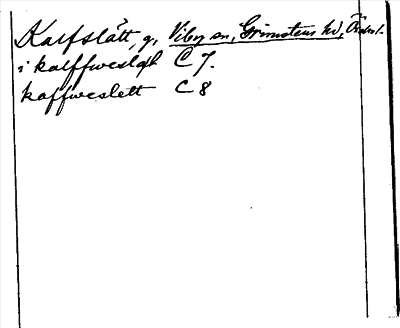 Kalfslätt, g, Viby sn, Grimstens hd, Ördm.
i kalffweslet C 7.
kaffweslett C 8